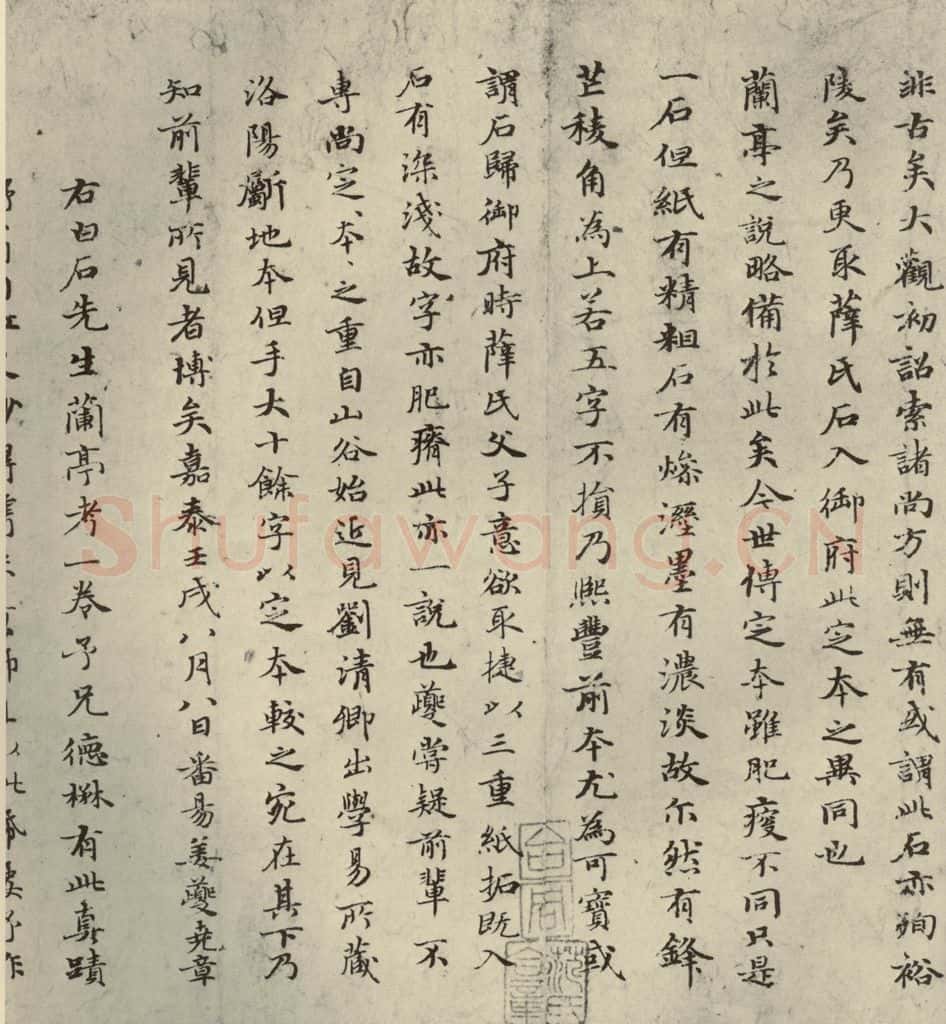 非古矣大觀初詔索諸尚方則無有或謂此石亦殉裕
陵矣乃更取薛氏石入御府此定本之異同也
蘭亭之說略備於此矣今世傳定本雖肥瘦不同只是
一石但紙有精粗石有燥溼墨有濃淡故尔然有鋒
芒稜角為上若五字不損乃熙豐前本尤為可寶或
謂石歸御府時薛氏父子意欲取捷以三重紙拓既入
石有深淺故字亦肥瘠此亦一說也夔嘗疑前輩不
專尚定本、之重自山谷始近見劉清卿出學易所藏
洛陽斸地本但手大十餘字以定本較之宛在其下乃
知前輩所見者博矣嘉泰壬戌八月八日番昜姜夔堯章
右白石先生蘭亭考一卷予兄德楙有此真蹟
Shufawang.CN